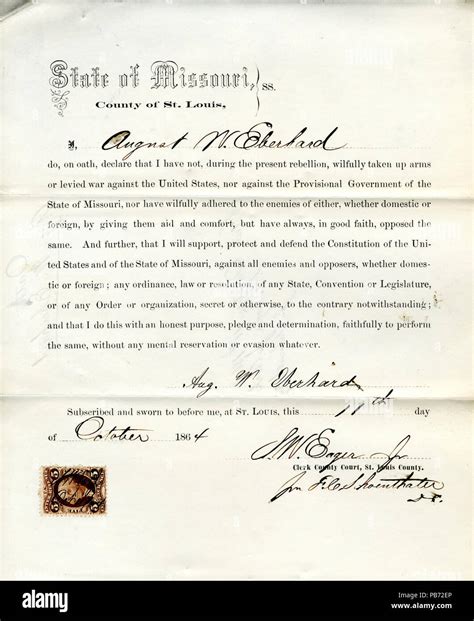 State of Missouri,
County of St. Louis,
ss.
I, August W. Eberhard
do, on oath, declare that I have not, during the present rebellion, wilfully taken up arms
or levied war against the United States, nor against the Provisional Government of the
State of Missouri, nor have wilfully adhered to the enemies of either, whether domestic or
foreign, by giving them aid and comfort, but have always, in good faith, opposed the
same. And further, that I will support, protect and defend the Constitution of the Uni-
ted States and of the State of Missouri, against all enemies and opposers, whether domes-
tic or foreign; any ordinance, law or resolution, of any State, Convention or Legislature,
or of any Order or organization, secret or otherwise, to the contrary notwithstanding;
and that I do this with an honest purpose, pledge and determination, faithfully to perform
the same, without any mental reservation or evasion whatever.
Aug. W. Eberhard
Subscribed and sworn to before me, at St. Louis, this 11th day
of October 1864
S. W. Eager Jr
Clerk County Court, St. Louis County.
F. C. Shoenthaler
alamy
alamy stock photo
PB72EP
www.alamy.com